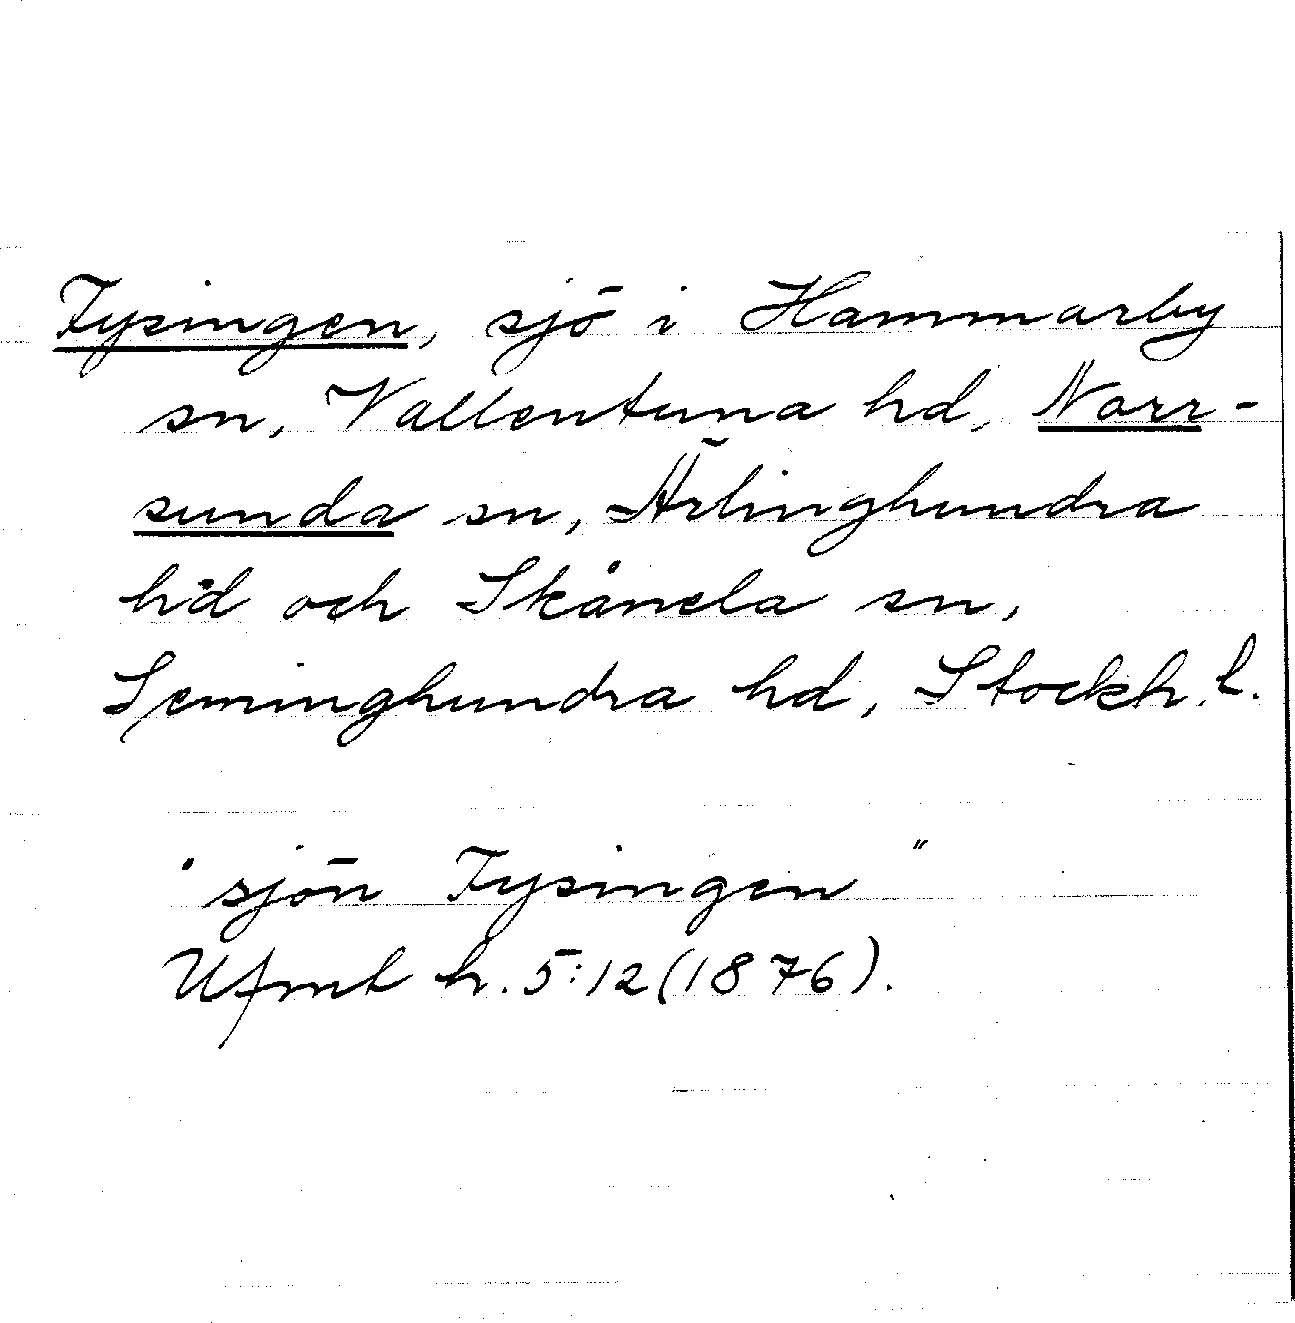 Fysingen, sjö i Hammarby
sn, Vallentuna hd, Norr-
sunda sn, Ärlinghundra
hd och Skånela sn,
Seminghundra hd, Stockh. l.
"sjön Fysingen"
Ufmt h. 5:12 (1876).